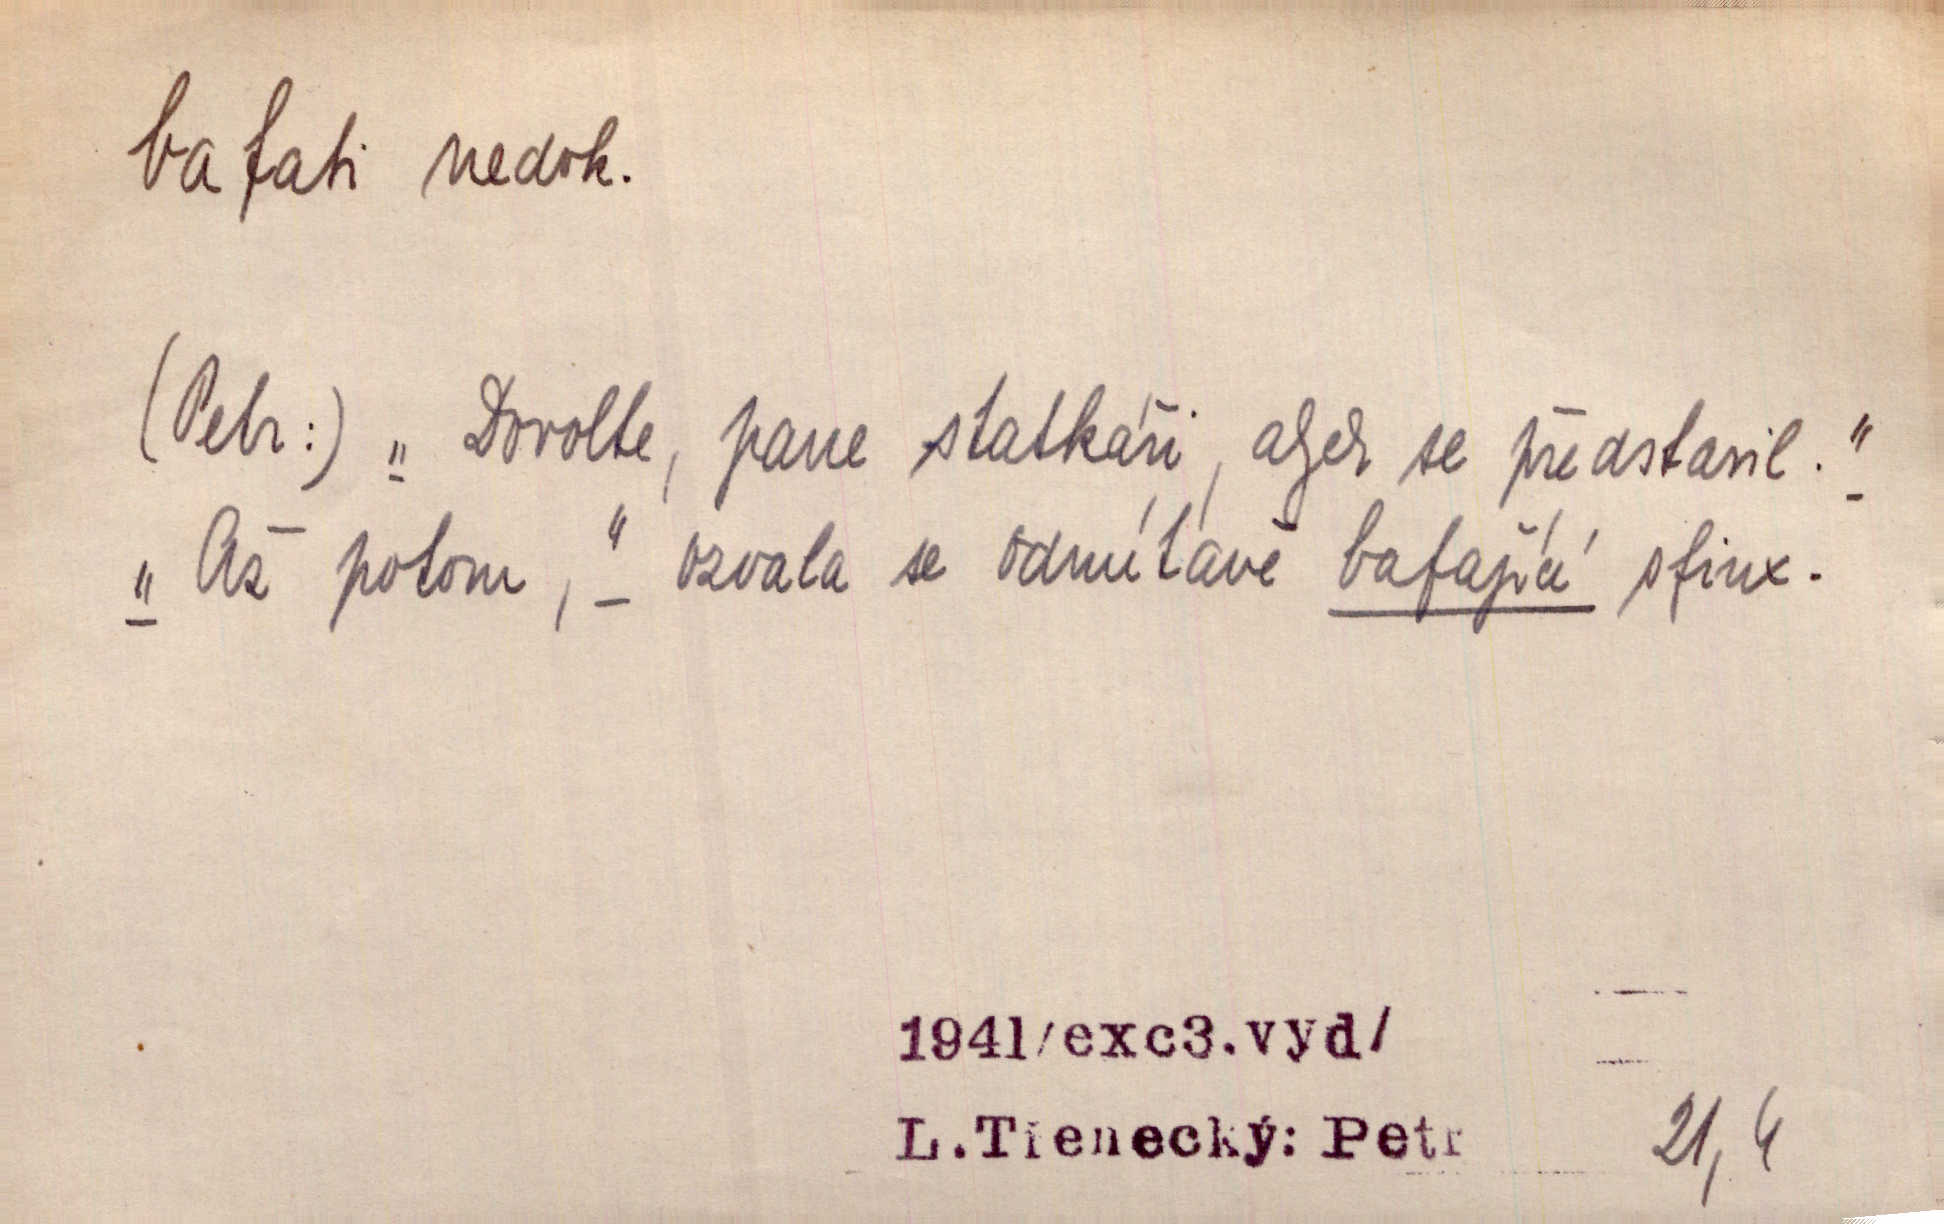 bafati nedok.
(Petr:) „Dovolte, pane statkáři, abych se představil.“
„Až potom,“ ozvala se odmítavě bafající sfinx.
1941/exc3.vyd/
L.Třenecký: Petr 21,4